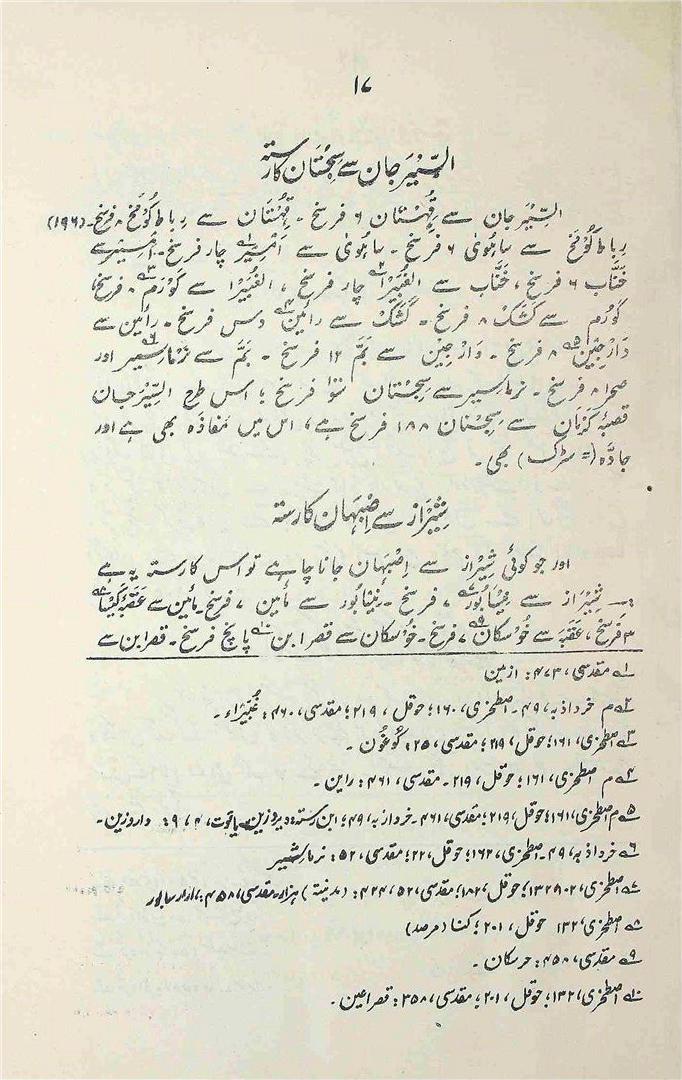 ۱۷
السِّیْرَجان سے سِجِسْتَان کا رستہ
السِّیْرجان سے قُہِسْتان ۶ فرسخ ۔ قُہِسْتَان سے رِباط کُوْمَخ ۸ فرسخ ۔ (۱۹۶)
رِباط کُوْمَخ سے ساہُویٰ ۶ فرسخ ۔ ساہُویٰ سے اَمْسِیْر چار فرسخ ۔ امسیر سے
خَنَّاب ۶ فرسخ ، خَنَّاب سے الغُبَیْرا چار فرسخ ، الغُبَیْرا سے کَوْرَم ۸ فرسخ ،
کَوْرَم سے کَشَک ۸ فرسخ ۔ کَشَک سے رائین دس فرسخ ۔ رائین سے
دَارَجِیْن ۸ فرسخ ۔ دارجیْن سے بَمّ ۱۲ فرسخ ۔ بَمّ سے نَرْماسیر اور
صحرا ۸ فرسخ ۔ نرماسیر سے سجستان سَو فرسخ ؛ اس طرح السِّیْرجان
قصبۂ کَرْمَان سے سجستان ۱۸۸ فرسخ ہے ، اس میں مَفَازَہ بھی ہے اور
جادَّہ (= سڑک) بھی ۔
شِیْرَاز سے اِصْبَہَان کا رستہ
اور جو کوئی شِیْرَاز سے اِصْبَہَان جانا چاہے تو اس کا رستہ یہ ہے
:— شِیْرَاز سے ۷ فرسخ ۔ سے مأئین ۷ فرسخ ۔ مأئین سے عَقَبَۂ
۳ فَرسخ ، عَقَبَہ سے خُوْسکان ۷ فرسخ ۔ خُوْسکان سے قصر ابن پانچ فرسخ ۔ قصر ابن سے
۱ے مقدسی ، ۴۷۳ : ازمین
۲ے م خرداذبہ ، ۴۹ ۔ اصطخری ، ۱۶۰ ؛ حوقل ، ۲۱۹ ؛ مقدسی ، ۴۶۰ : غُبَیْراء ۔
۳ے اصطخری ، ۱۶۱ ؛ حوقل ، ۲۱۹ ؛ مقدسی ، ۲۵ : کُوْغُوْن ۔
۴ے م اصطخری ، ۱۶۱ ؛ حوقل ، ۲۱۹ ۔ مقدسی ، ۴۶۱ : راین ۔
۵ے م اصطخری ، ۱۶۱ ؛ حوقل ، ۲۱۹ ؛ مقدسی ، ۴۶۱ ۔ خرداذبہ ، ۴۹ ؛ ابن رستہ : دیروزین ۔ یاقوت ، ۴ ، ۹ : داروزین ۔
۶ے خرداذبہ ، ۴۹ ۔ اصطخری ، ۱۶۲ ؛ حوقل ، ۲۲ ؛ مقدسی ، ۵۲ : نرماشیر
۷ے اصطخری ، ۱۰۲ ، ۱۳۲ ؛ حوقل ، ۱۸۲ ؛ مقدسی ، ۵۲ ، ۴۲۴ : (مدینة) ہزار ۔ مقدسی ، ۴۵۸ : ازار سابور
۸ے اصطخری ، ۱۳۲ حوقل ، ۲۰۱ ؛ کنا (مرصد)
۹ے مقدسی ، ۴۵۸ : حرسکان ۔
۱۰ے اصطخری ، ۱۳۲ ؛ حوقل ، ۲۰۱ ؛ مقدسی ، ۳۵۸ : قصر اعین ۔